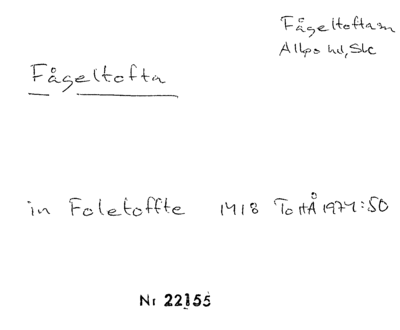 Fågeltofta sn
Albo hd, Skc
Fågeltofta
in Foletoffte 1418 TortÅ 1974:50
Nr 22155